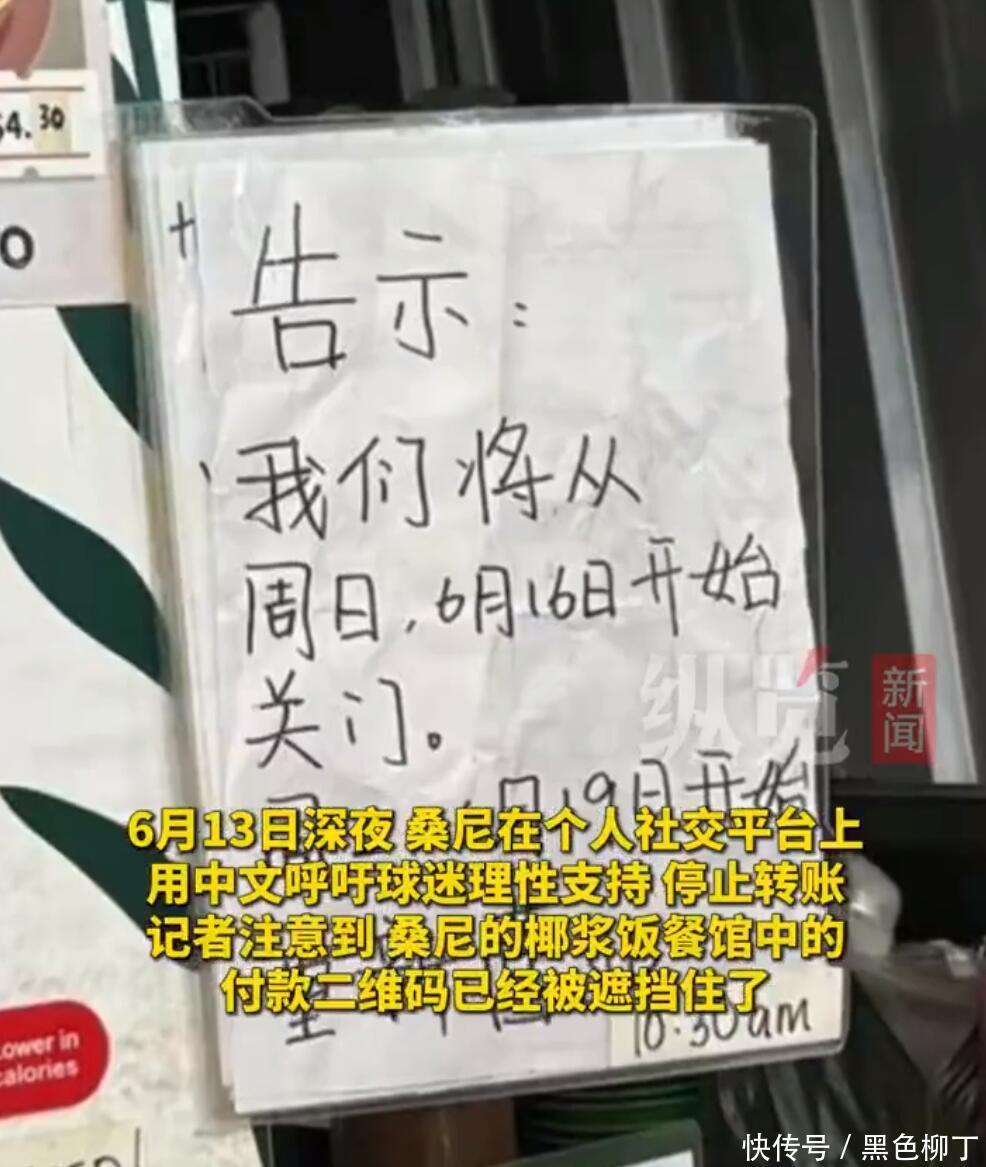 $4.30
0
告示：
我们将从
周日，6月16日开始
关门。
月19日开始
纵览
新闻
6月13日深夜 桑尼在个人社交平台上
用中文呼吁球迷理性支持 停止转账
记者注意到 桑尼的椰浆饭餐馆中的
付款二维码已经被遮挡住了
10.30am
Lower in
calories
快传号 / 黑色柳丁